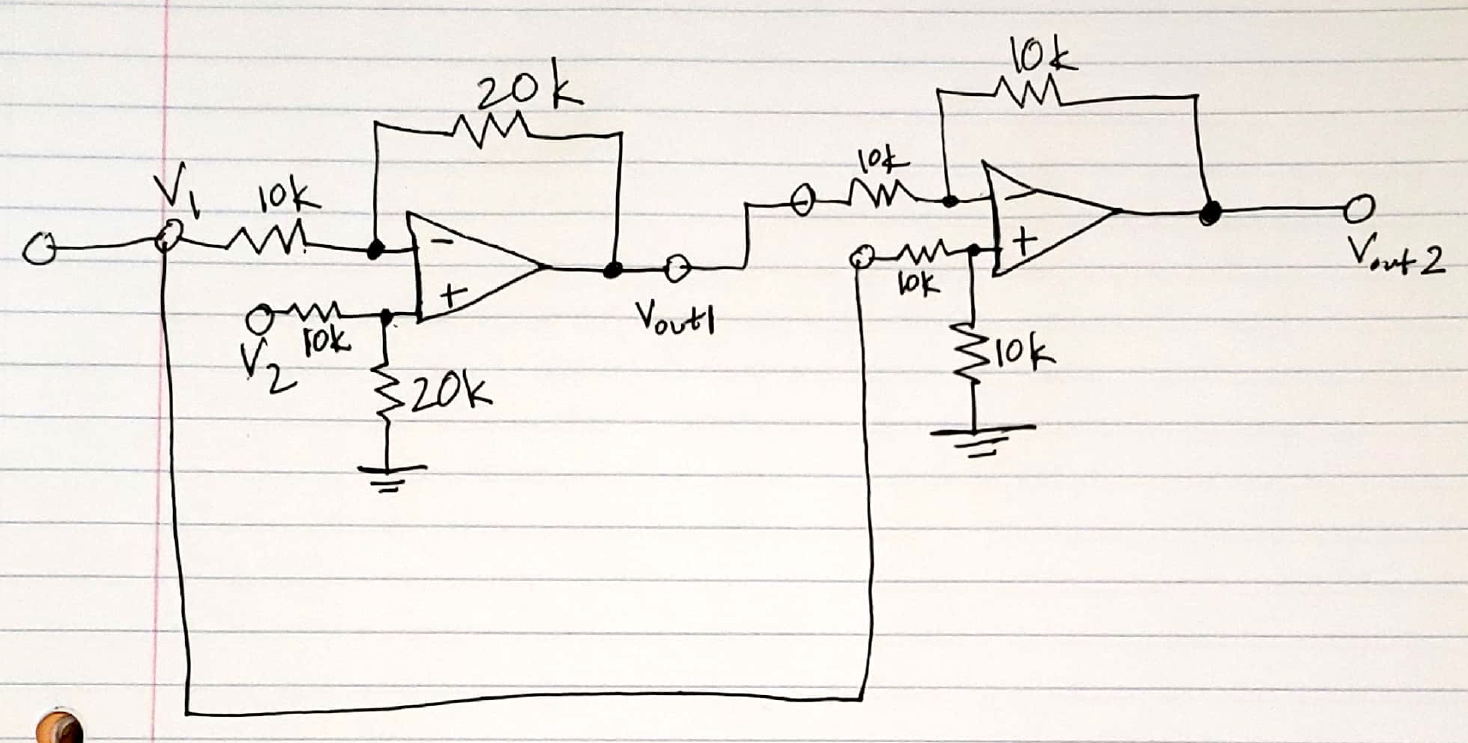 20k
10k
V1
10k
10k
-
+
V2
10k
20k
Vout1
-
+
10k
10k
Vout2